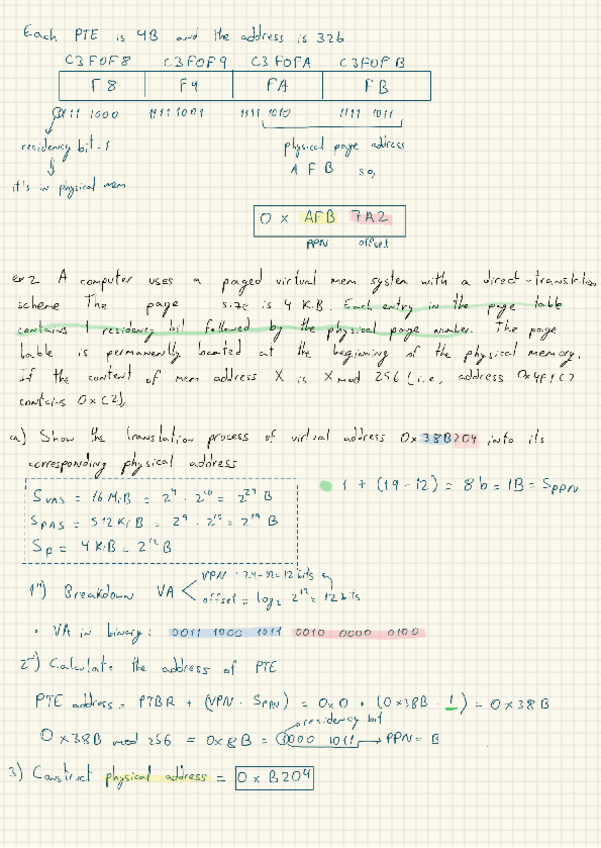 Each PTE is 4B and the address is 32b
C3F0F8 C3F0F9 C3F0FA C3F0FB
F8 F9 FA FB
1111 1000 1111 1001 1111 1010 1111 1011
residency bit = 1 physical page address
A F B so,
it's in physical mem
0 x AFB 7A2
PPN offset
ex 2 A computer uses a paged virtual mem system with a direct-translation
scheme The page size is 4 KiB. Each entry in the page table
contains 1 residency bit followed by the physical page number. The page
table is permanently located at the beginning of the physical memory.
If the content of mem address X is X mod 256 (i.e, address
contains 0xC2),
a) Show the translation process of virtual address 0x38B204 into its
corresponding physical address
S_VAS = 16 MiB = 2^4 · 2^20 = 2^24 B
1 + (19-12) = 8b = 1B = S_PPN
S_PAS = 512 KiB = 2^9 · 2^10 = 2^19 B
S_P = 4 KiB = 2^12 B
VPN: 24-12 = 12 bits
1st) Breakdown VA
offset = log2 2^12 = 12 bits
· VA in binary: 0011 1000 1011 0010 0000 0100
2nd) Calculate the address of PTE
PTE address = PTBR + (VPN · S_PPN) = 0x0 + (0x38B · 1) = 0x38B
residency bit
0x38B mod 256 = 0x8B = 1000 1011 → PPN = B
3) Construct physical address = 0xB204